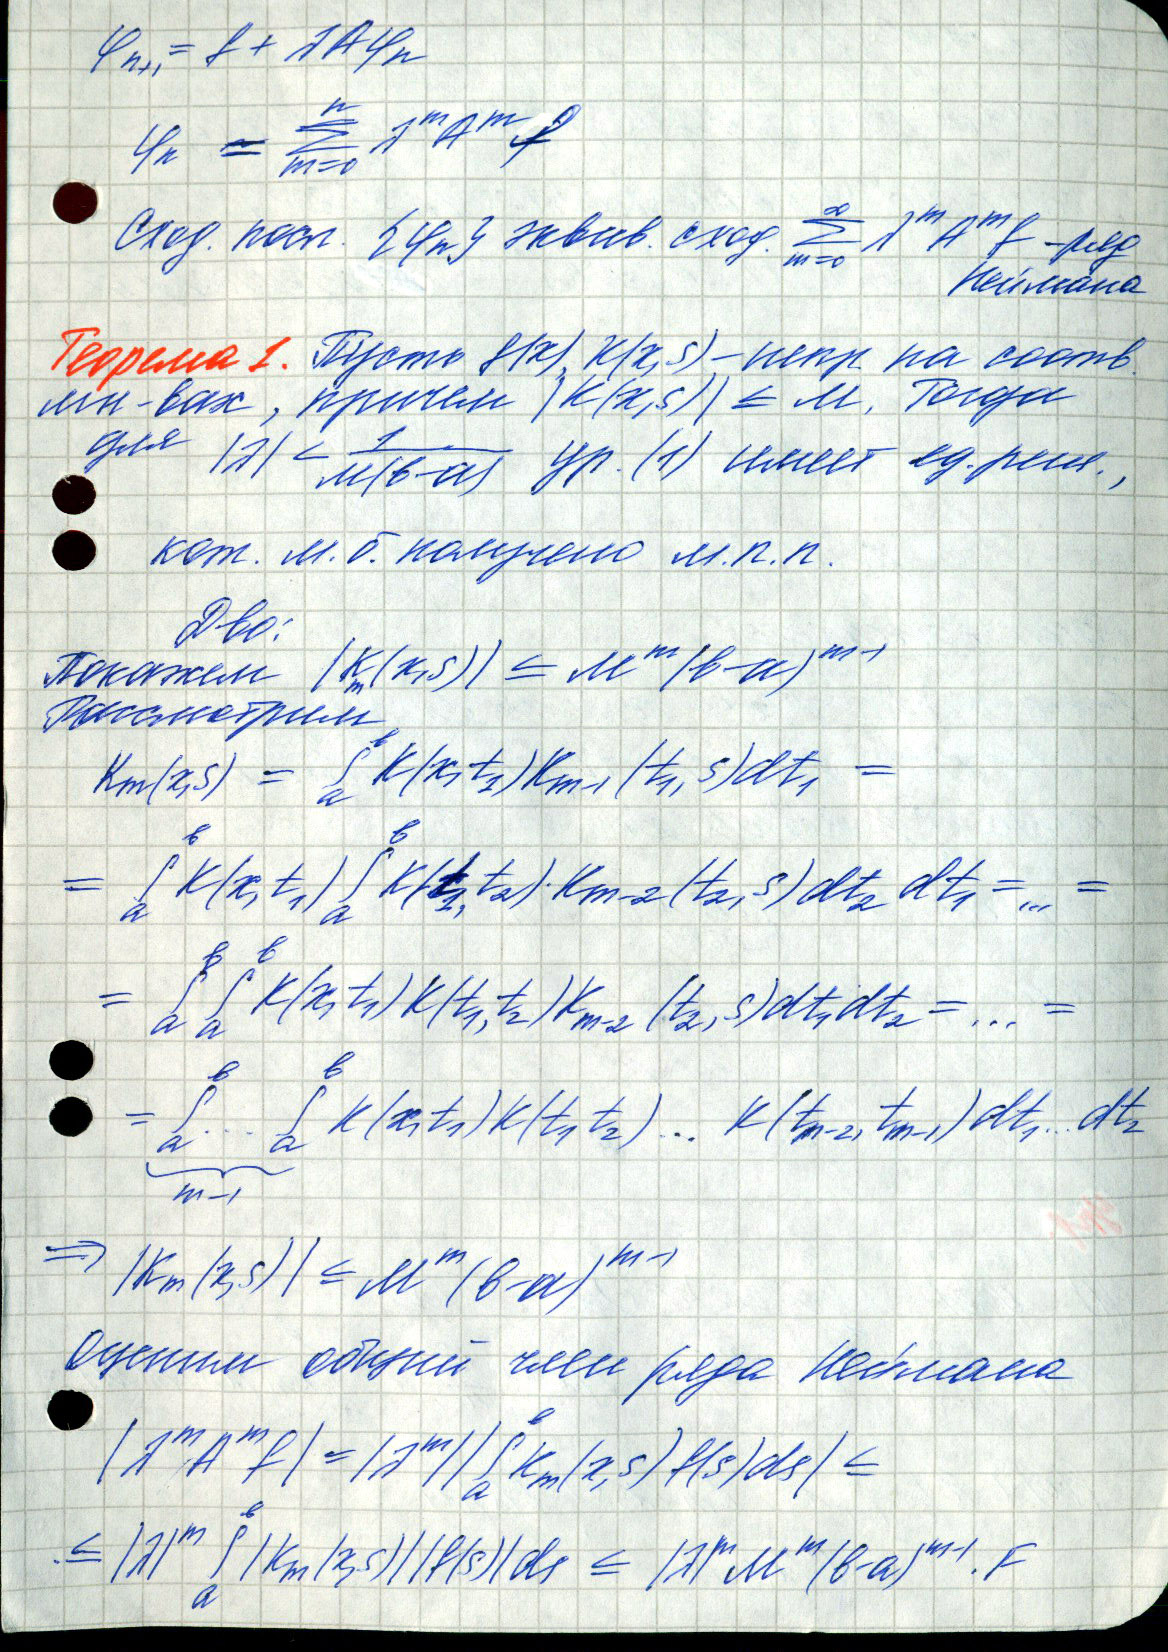 φₙ₊₁ = f + λAφₙ
φₙ = ∑_{m=0}^{n} λ^m A^m f
Сход. посл. {φₙ} эквив. сход. ∑_{m=0}^{∞} λ^m A^m f - ряд
Неймана
Теорема 1. Пусть f(x), K(x,s) - непр. на соотв.
мн-вах, причем |K(x,s)| ≤ M. Тогда
для |λ| < 1/(M(b-a)) ур. (1) имеет ед. реш.,
кот. м.б. получено м.п.п.
Д-во:
Покажем |K_m(x,s)| ≤ M^m (b-a)^{m-1}
Рассмотрим
K_m(x,s) = ∫_a^b K(x,t_1) K_{m-1}(t_1,s) dt_1 =
= ∫_a^b K(x,t_1) ∫_a^b K(t_1,t_2)·K_{m-2}(t_2,s) dt_2 dt_1 = ... =
= ∫_a^b ∫_a^b K(x,t_1) K(t_1,t_2) K_{m-2}(t_2,s) dt_1 dt_2 = ... =
= ∫_a^b ... ∫_a^b K(x,t_1) K(t_1 t_2) ... K(t_{m-2}, t_{m-1}) dt_1 ... dt_2
m-1
⇒ |K_m(x,s)| ≤ M^m (b-a)^{m-1}
Оценим общий член ряда Неймана
|λ^m A^m f| = |λ^m| |∫_a^b K_m(x,s) f(s) ds| ≤
≤ |λ|^m ∫_a^b |K_m(x,s)| |f(s)| ds ≤ |λ|^m M^m (b-a)^{m-1} · F